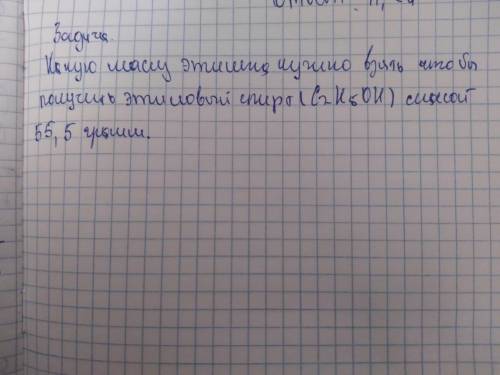 Задача.
Какую массу этилена нужно взять чтобы
получить этиловый спирт (C2H5OH) массой
55,5 грамм.